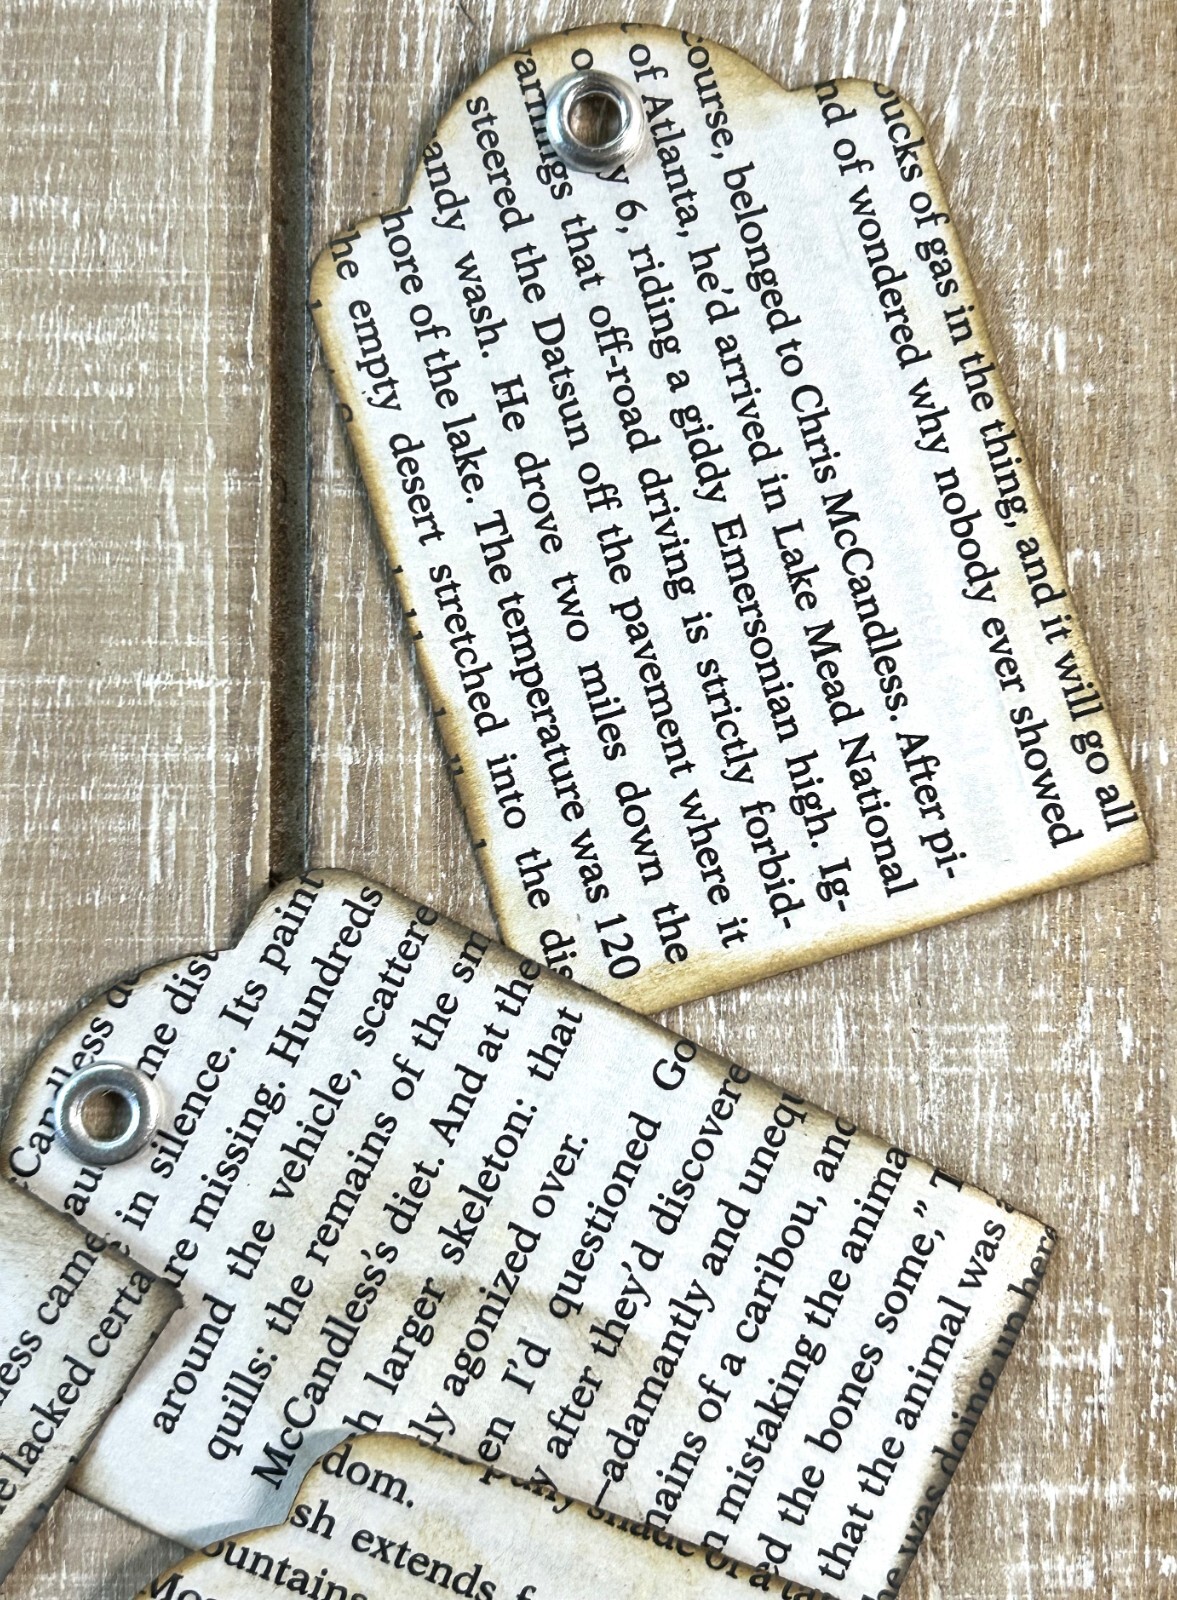 bucks of gas in the thing, and it will go all
nd of wondered why nobody ever showed
course, belonged to Chris McCandless. After pi-
of Atlanta, he'd arrived in Lake Mead National
y 6, riding a giddy Emersonian high. Ig-
warnings that off-road driving is strictly forbid-
steered the Datsun off the pavement where it
andy wash. He drove two miles down the
hore of the lake. The temperature was 120
he empty desert stretched into the dis
cCandless
me dist
in silence. Its paint
re missing. Hundreds
around the vehicle, scattere
quills: the remains of the sm
McCandless's diet. And at the
h larger skeleton: that
ly agonized over.
en I'd questioned Go
y after they'd discovere
—adamantly and unequ
mains of a caribou, and
n mistaking the anima
ed the bones some," T
that the animal was
he was doing up here
ess came
e lacked certa
shade of a ta
dom.
sh extends f
ountains
Moj